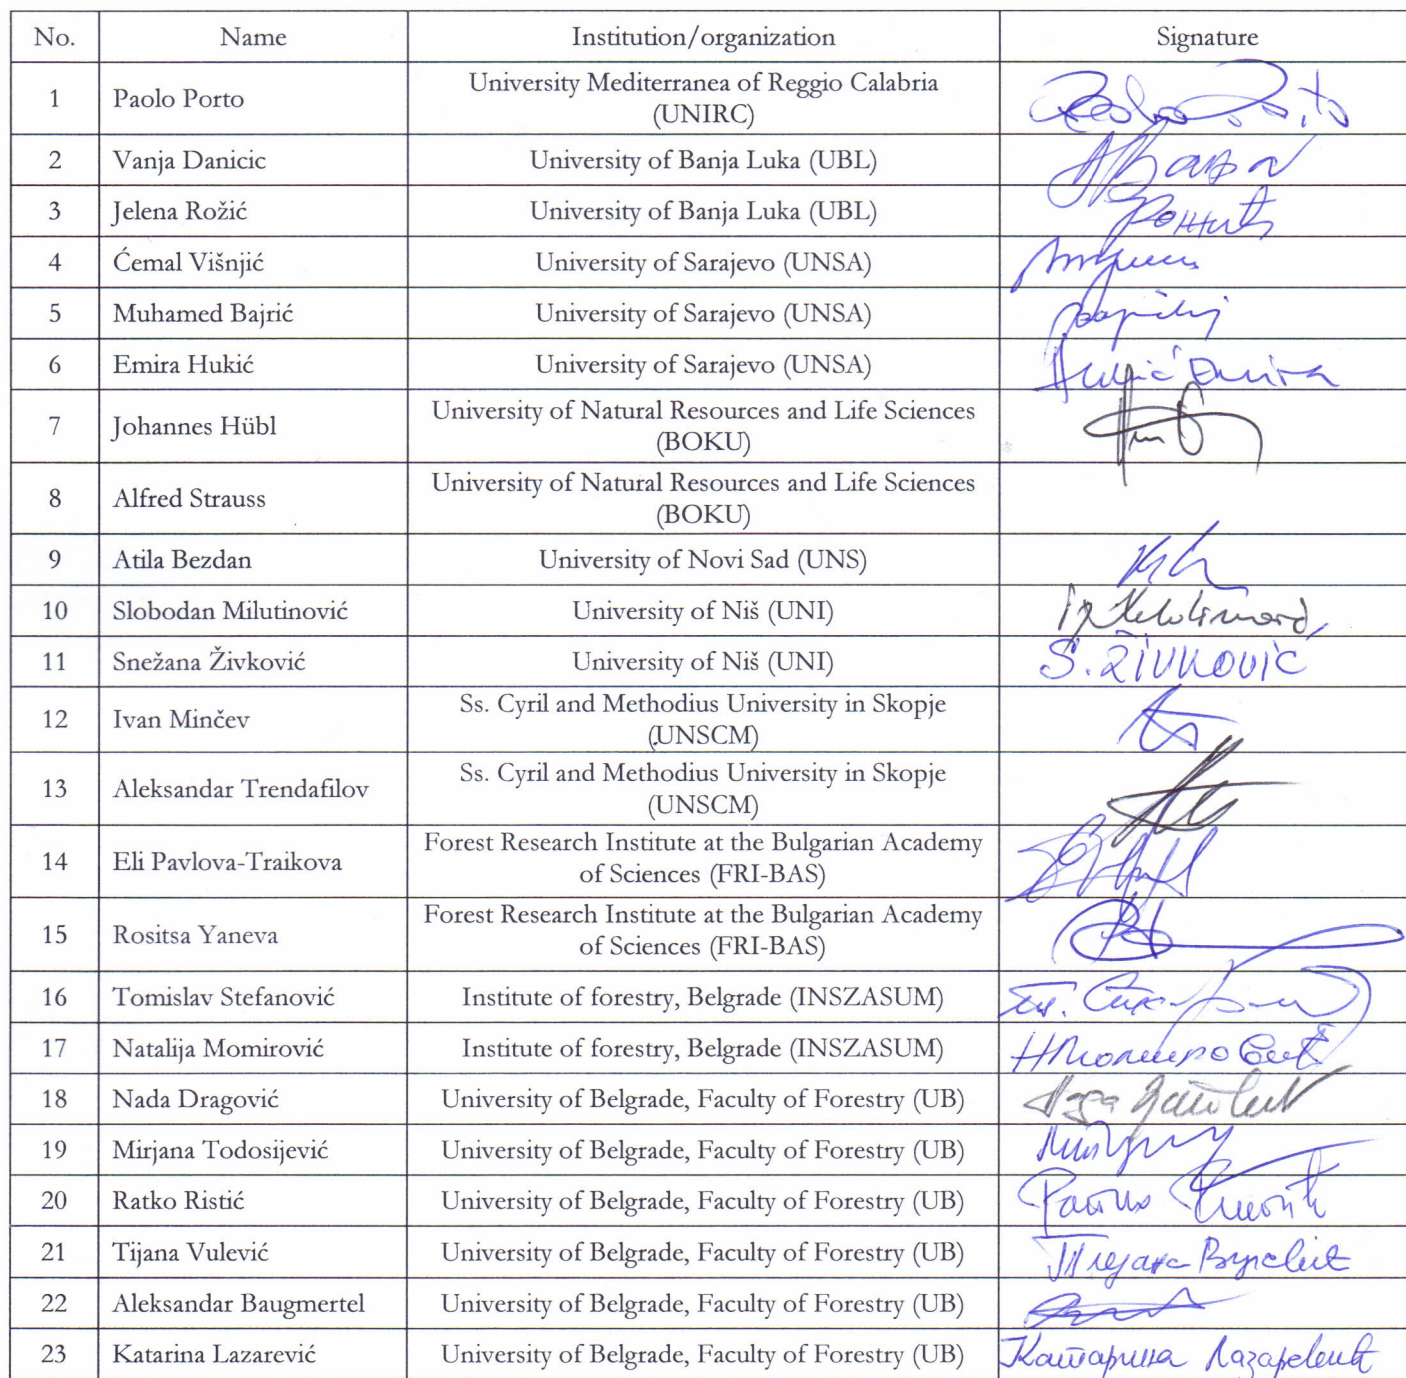 No. Name Institution/organization Signature
1 Paolo Porto University Mediterranea of Reggio Calabria
(UNIRC) Paolo Porto
2 Vanja Danicic University of Banja Luka (UBL)
3 Jelena Rožić University of Banja Luka (UBL) Рожић
4 Ćemal Višnjić University of Sarajevo (UNSA)
5 Muhamed Bajrić University of Sarajevo (UNSA)
6 Emira Hukić University of Sarajevo (UNSA) Hukić Emira
7 Johannes Hübl University of Natural Resources and Life Sciences
(BOKU)
8 Alfred Strauss University of Natural Resources and Life Sciences
(BOKU)
9 Atila Bezdan University of Novi Sad (UNS)
10 Slobodan Milutinović University of Niš (UNI)
11 Snežana Živković University of Niš (UNI) S. ŽIVKOVIĆ
12 Ivan Minčev Ss. Cyril and Methodius University in Skopje
(UNSCM)
13 Aleksandar Trendafilov Ss. Cyril and Methodius University in Skopje
(UNSCM)
14 Eli Pavlova-Traikova Forest Research Institute at the Bulgarian Academy
of Sciences (FRI-BAS)
15 Rositsa Yaneva Forest Research Institute at the Bulgarian Academy
of Sciences (FRI-BAS)
16 Tomislav Stefanović Institute of forestry, Belgrade (INSZASUM)
17 Natalija Momirović Institute of forestry, Belgrade (INSZASUM) Н Момировић
18 Nada Dragović University of Belgrade, Faculty of Forestry (UB)
19 Mirjana Todosijević University of Belgrade, Faculty of Forestry (UB)
20 Ratko Ristić University of Belgrade, Faculty of Forestry (UB) Ратко Ристић
21 Tijana Vulević University of Belgrade, Faculty of Forestry (UB) Тијана Вулевић
22 Aleksandar Baugmertel University of Belgrade, Faculty of Forestry (UB)
23 Katarina Lazarević University of Belgrade, Faculty of Forestry (UB) Катарина Лазаревић